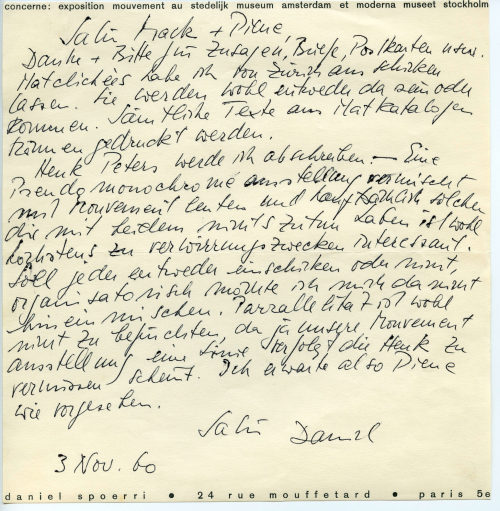 concerne: exposition mouvement au stedelijk museum amsterdam et moderna museet stockholm
Salü Mack + Piene,
Danke + Bitte für Zusagen, Briefe, Postkarten usw.
Matclichées habe ich von Zürich aus schicken
lassen. Sie werden wohl entweder da sein oder
kommen. Sämtliche Texte aus Matkatalogen
können gedruckt werden.
Henk Peters werde ich abschreiben — Eine
Pseudo monochrome ausstellung vermischt
mit Mouvement leuten und solchen
die mit beidem nichts zutun haben ist wohl
höchstens zu verwirrungszwecken interessant.
Soll jeder entweder einschicken oder nicht,
organisatorisch möchte ich mich da nicht
hinein mischen. Parrallelität ist wohl
nicht zu befürchten, da ja unsere Mouvement
ausstellung eine Linie verfolgt die Henk zu
vermissen scheint. Ich erwarte also Piene
wie vorgesehen.
Salü Daniel
3 Nov. 60
daniel spoerri • 24 rue mouffetard • paris 5e